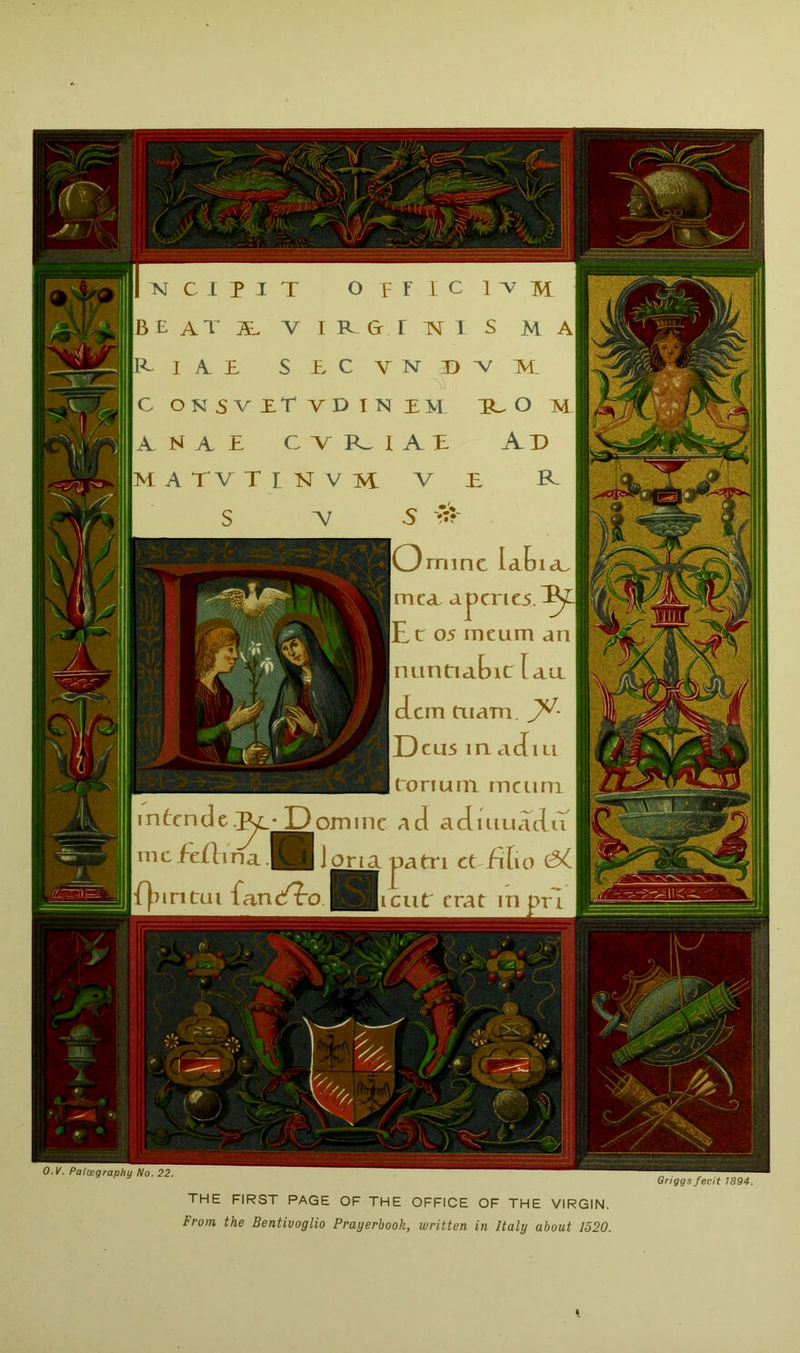 INCIPIT OFFICIVM
BEATÆ VIRGINIS MA
RIAE SECVNDVM
CONSVETVDINEM ROM
ANAE CVRIAE AD
MATVTINVM VER
SVS
DOmine labia
mea aperies. ℟
Et os meum an
nuntiabit lau
dem tuam. ℣
Deus in adiu
torium meum
intende. ℟. Domine ad adiuuādū
me feſtina. Gloria patri et filio &
ſpiritui ſancto. Sicut erat in prī
O.V. Palæography No. 22.
Griggs fecit 1894.
THE FIRST PAGE OF THE OFFICE OF THE VIRGIN.
From the Bentivoglio Prayerbook, written in Italy about 1520.